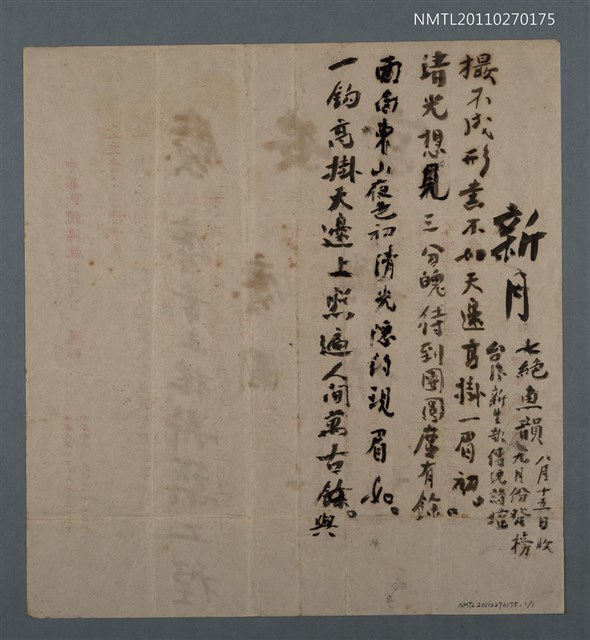 NMTL20110270175
新月
七絶魚韻 八月十五日收
台灣新生報傳統詩壇 九月份發榜
撮不成形畫不如天邊高掛一眉初。
清光想見三分魄待到團圓廑有餘。
面向東山夜色初清光隱約現眉如。
一鈎高掛天邊上照遍人间萬古餘與
NMTL20110270175, 1/1